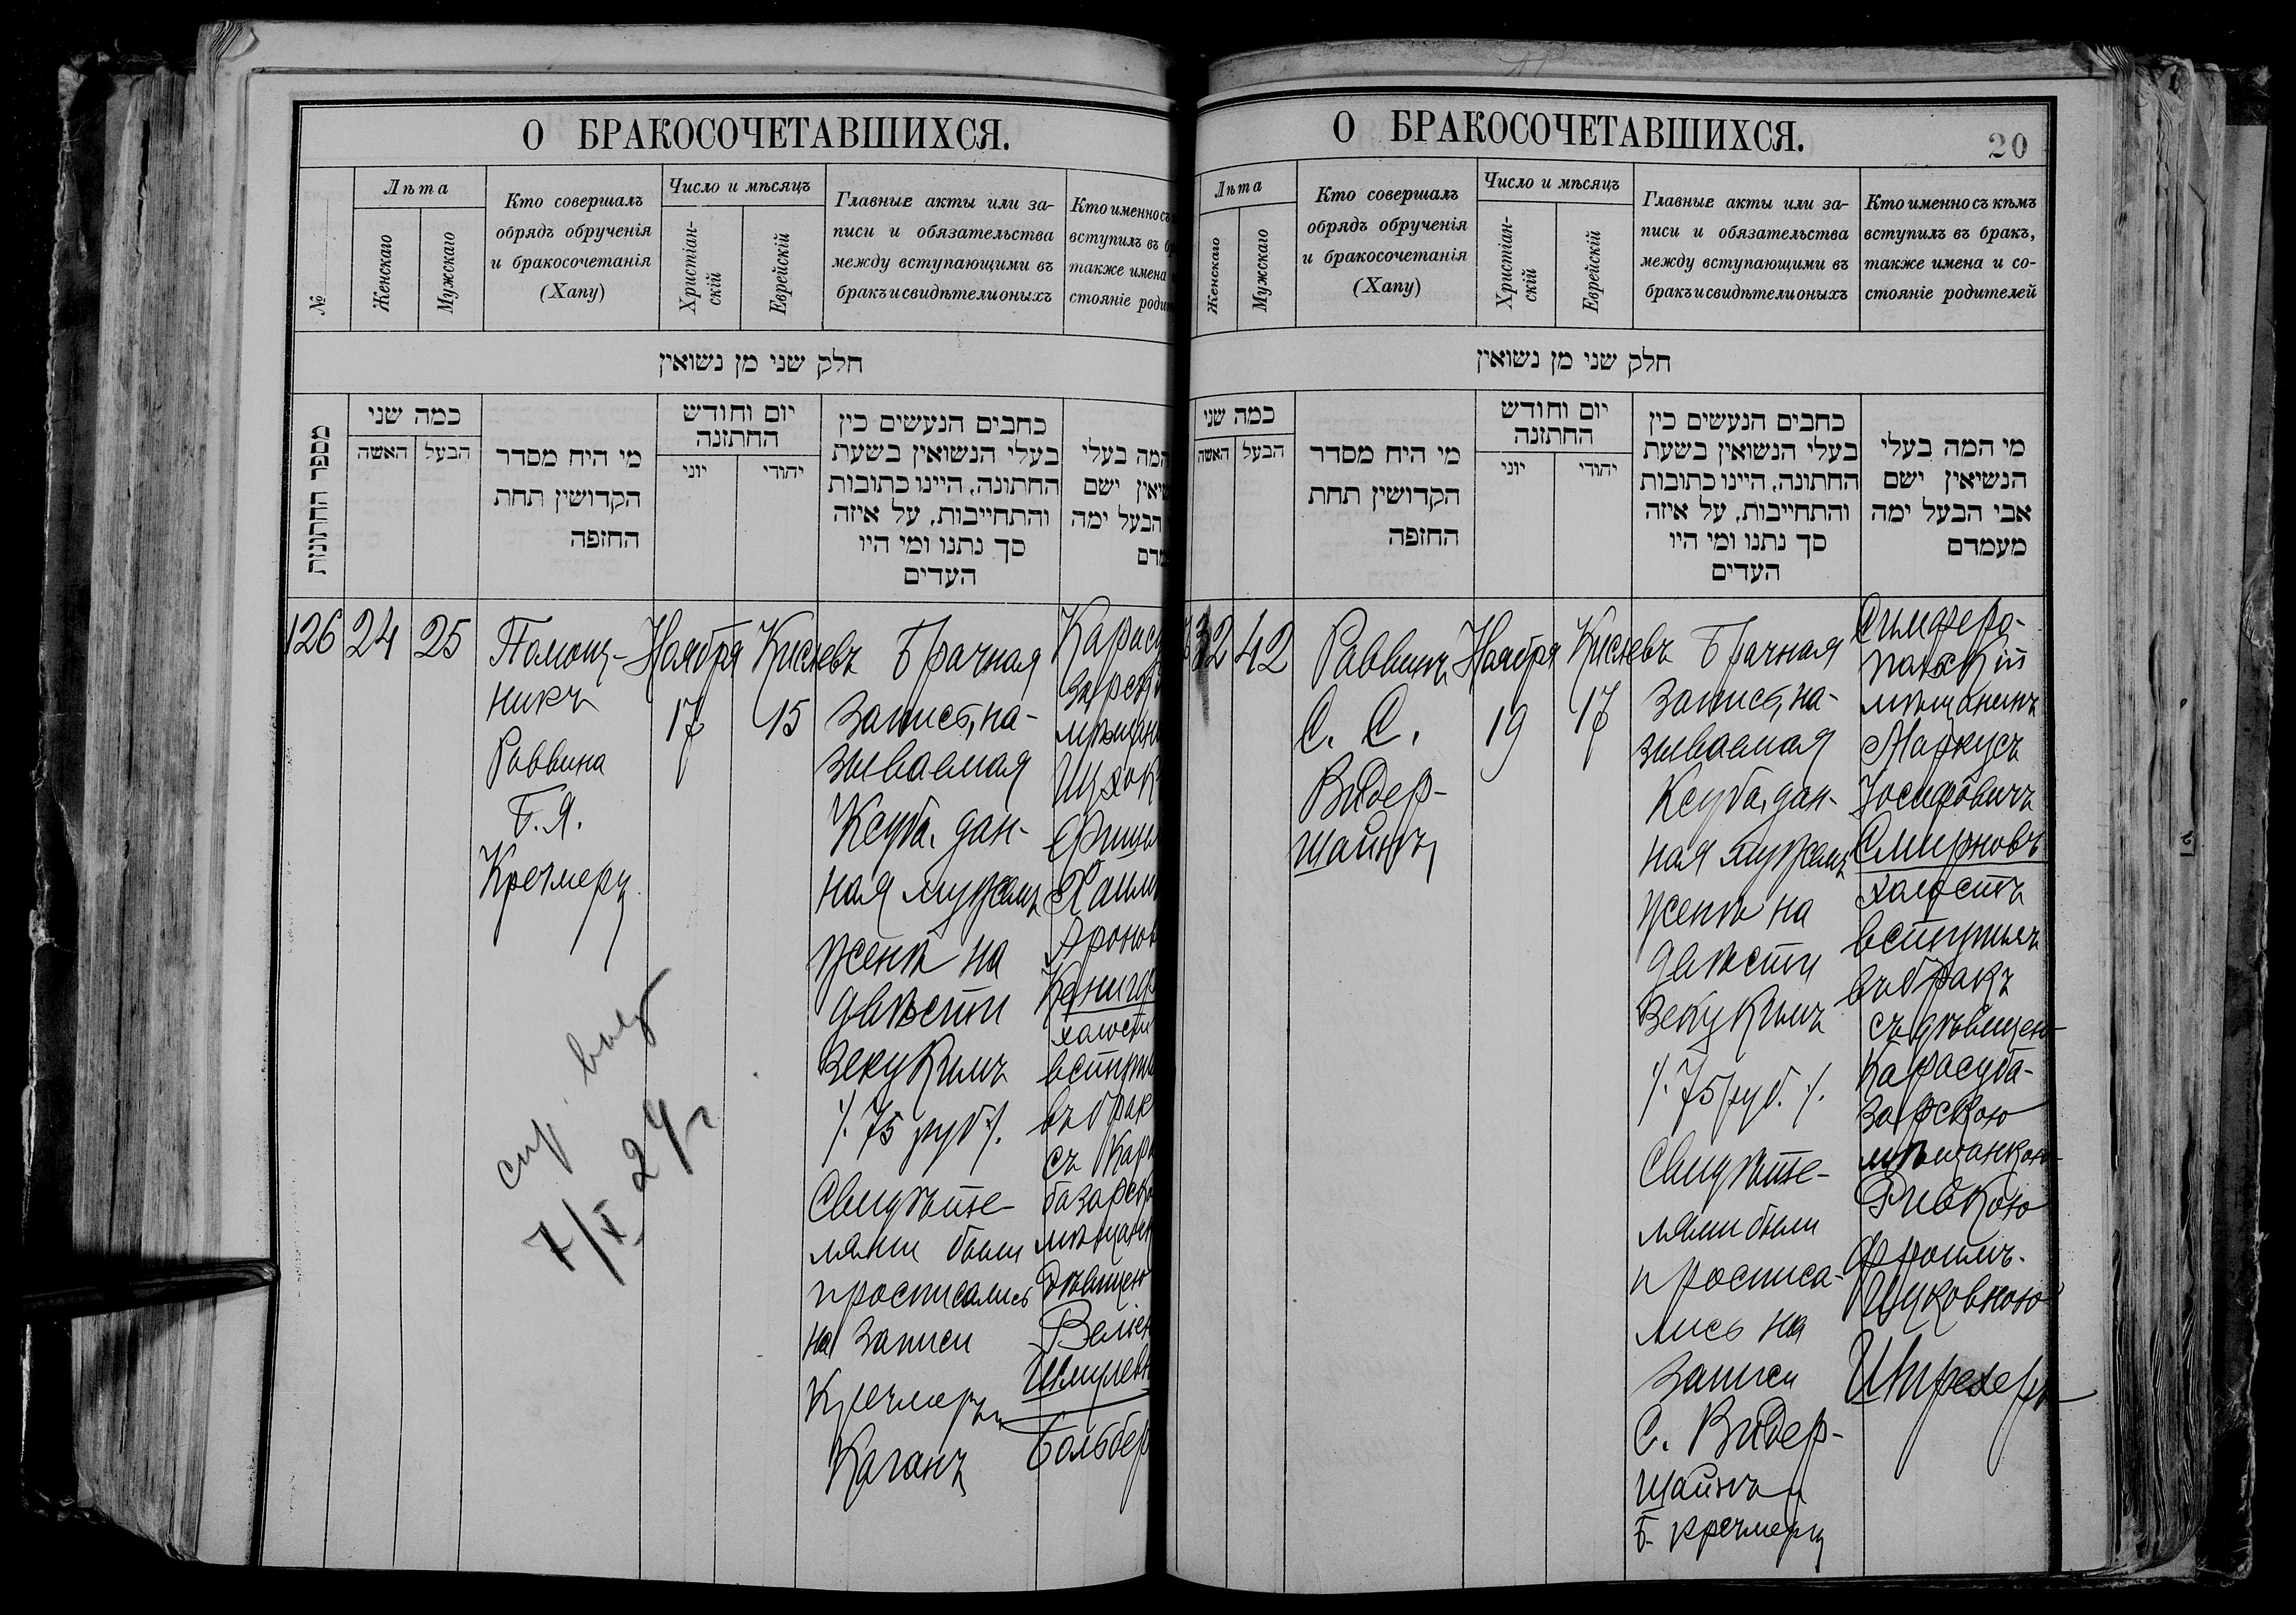 О БРАКОСОЧЕТАВШИХСЯ.
№
Лѣта
Женскаго
Мужскаго
Кто совершалъ
обрядъ обрученія
и бракосочетанія
(Хапу)
Число и мѣсяцъ
Христіан-
скій
Еврейскій
Главные акты или за-
писи и обязательства
между вступающими въ
бракъ и свидѣтели оныхъ
Кто именно съ
вступилъ въ
также имена
стояніе
חלק שני מן נשואין
מספר החתונות
כמה שני
האשה
הבעל
מי היח מסדר
הקדושין תחת
החופה
יום וחודש
החתונה
יוני
יהודי
כתבים הנעשים כין
בעלי הנשואין בשעת
החתונה, היינו כתובות
והתחייבות, על איזה
סך נתנו ומי היו
העדים
המה בעלי
ישם
הבעל ימה
126
24
25
Помощ-
никъ
Раввина
Б. Я.
Кречмеръ
Ноября
17
Кислевъ
15
Брачная
запись, на-
зываемая
Ксуба, дан-
ная мужемъ
женѣ на
двѣсти
зекукимъ
/. 75 руб /.
Свидѣте-
лями были
и росписались
на записи
Кречмеръ и
Каганъ
мѣщан
Арон
холост
въ брак
съ Кара
базарск
мѣщанск
дѣвицею
Шмулевн
Гольдбер
7/X 24 г
О БРАКОСОЧЕТАВШИХСЯ.
20
Лѣта
Женскаго
Мужскаго
Кто совершалъ
обрядъ обрученія
и бракосочетанія
(Хапу)
Число и мѣсяцъ
Христіан-
скій
Еврейскій
Главные акты или за-
писи и обязательства
между вступающими въ
бракъ и свидѣтели оныхъ
Кто именно съ кѣмъ
вступилъ въ бракъ,
также имена и со-
стояніе родителей
חלק שני מן נשואין
כמה שני
האשה
הבעל
מי היח מסדר
הקדושין תחת
החופה
יום וחודש
החתונה
יוני
יהודי
כתבים הנעשים כין
בעלי הנשואין בשעת
החתונה, היינו כתובות
והתחייבות, על איזה
סך נתנו ומי היו
העדים
מי המה בעלי
הנשיאין ישם
אבי הבעל ימה
מעמדם
32
42
Раввинъ
С. С.
Видер-
шайнъ
Ноября
19
Кислевъ
17
Брачная
запись, на-
зываемая
Ксуба, дан-
ная мужемъ
женѣ на
двѣсти
зекукимъ
/. 75 руб. /.
Свидѣте-
лями были
и росписа-
лись на
записи
С. Видер-
шайнъ и
Б. Кречмеръ
Симферо-
польскій
мѣщанинъ
Маркусъ
Іосифовичъ
Смирновъ
холостъ
вступилъ
въ бракъ
съ дѣвицею
Карасуба-
зарскою
мѣщанкою
Ривкою
Фроимъ-
Ицковною
Штрехеръ